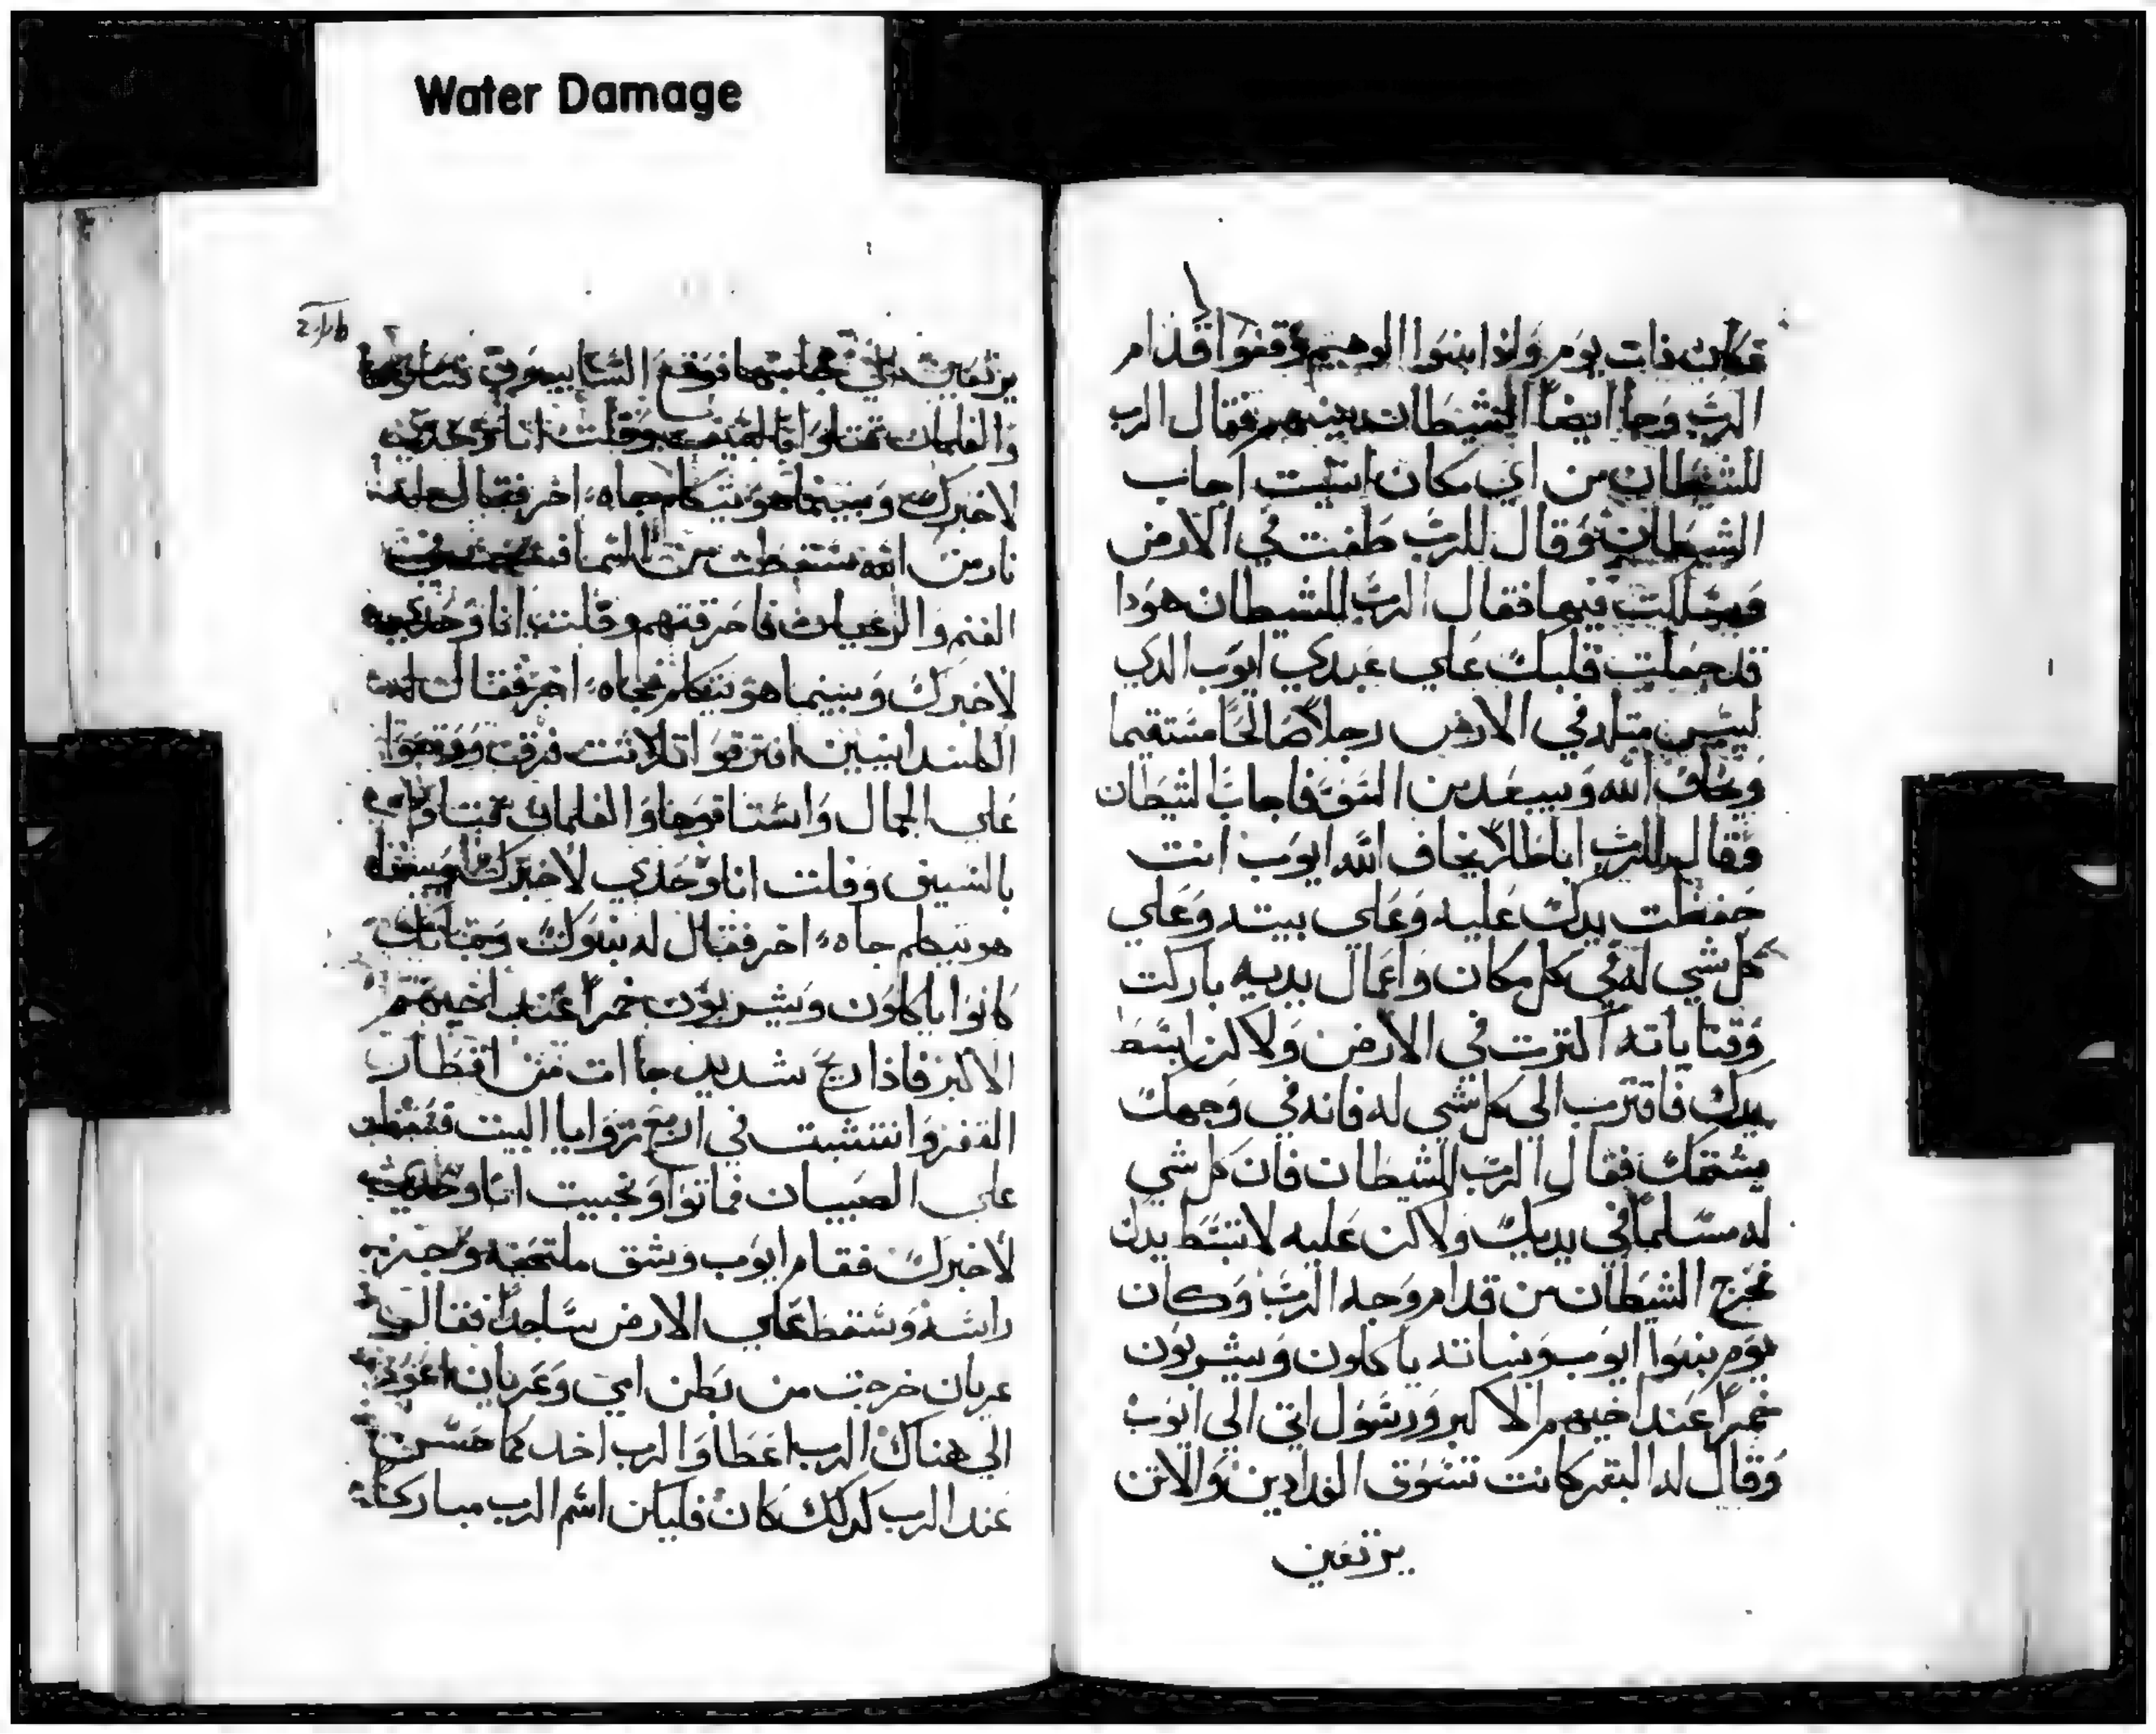 Water Damage
فكان ذات يوم واذا بنوا الوهيم وقفوا قدام
الرب وجا ايضاً الشيطان بينهم فقال الرب
للشيطان من اي مكان اتيت اجاب
الشيطان وقال للرب طفت في الارض
وسلكت فيها فقال الرب للشيطان هودا
قد جعلت قلبك علي عبدي ايوب الدي
ليس مثله في الارض رجلاً صالحاً مستقيما
ويخاف الله ويبعد من السو فاجاب الشيطان
وقال للرب اباطلاً يخاف الله ايوب انت
حفظت يدك عليه وعلي بيته وعلي
كل شي له في كل مكان واعمال يديه باركت
وقناياته اكثرت في الارض ولاكن ابسط
يدك فاقترب الي كل شي له فانه في وجهك
يشتمك فقال الرب للشيطان فان كل شي
له مسلماً في يديك ولاكن عليه لا تبسط يدك
فخرج الشيطان من قدام وجه الرب وكان
يوم بنوا ايوب وبناته ياكلون ويشربون
خمراً عند اخيهم الاكبر ورسول اتى الي ايوب
وقال له البقر كانت تسوق الفدادين والاتن
يرتعين
يرتعين علي فوقع السبا
والغلمان وفلت انا وحدي
لاخبرك وبينما هو يتكلم جاه اخر فقال له
نار من الله سقطت من السما
الغنم والرعيان فاحرقتهم وفلت انا وحدي
لاخبرك وبينما هو يتكلم جاه اخر فقال له
الكلندانيين افترقوا تلاتت فرق ووقعوا
علي الجمال واستاقوها والغلمان
بالسيف وفلت انا وحدي لاخبرك وبينما
هو يتكلم جاه اخر فقال له بنوك وبناتك
كانوا ياكلون ويشربون خمراً عند اخيهم
الاكبر فاذا ريح شديد جاات من اقطار
القفر وانتشبت في اربع زوايا البيت فسقط
علي الصبيان فماتوا ونجيت انا وحدي
لاخبرك فقام ايوب وشق ملتحفه وجز
راسه وسقط علي الارض ساجداً فقال
عريان خرجت من بطن امي وعريان اعود
الي هناك الرب اعطا والرب اخد كما حسن
عند الرب كدلك كان فليكن اسم الرب مباركا